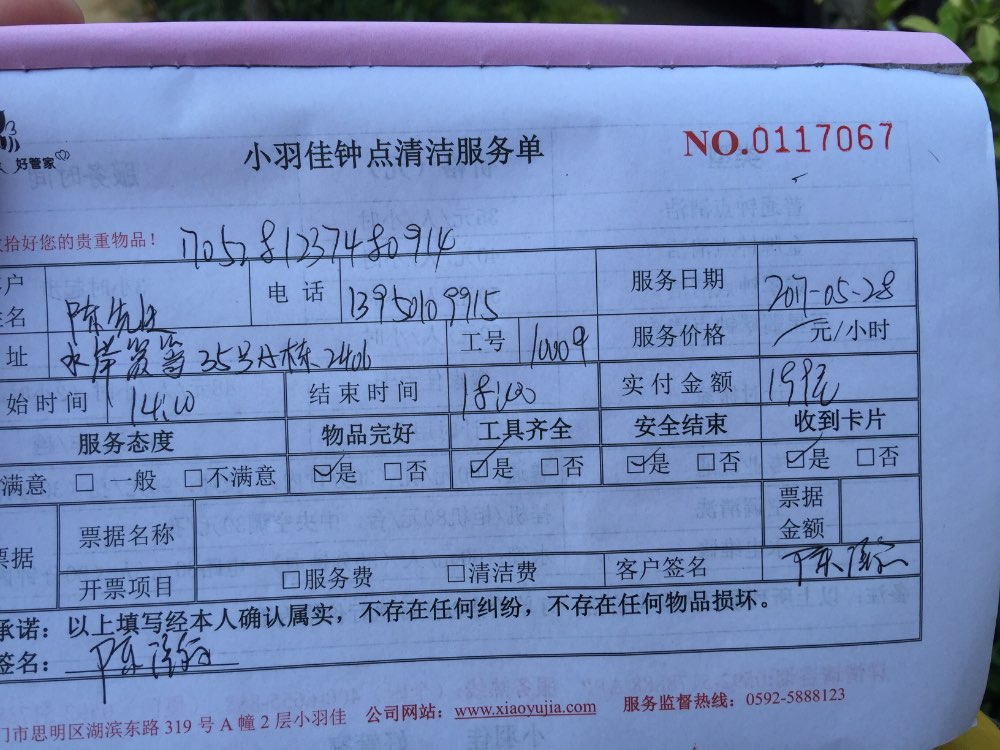 好管家
小羽佳钟点清洁服务单
NO.0117067
拾好您的贵重物品！
17052812374480914
客户姓名 陈先生 电话 13950109915 服务日期 2017-05-28
址 水岸 35号A栋2406 工号 10009 服务价格 元/小时
始时间 14:00 结束时间 18:00 实付金额 199元
服务态度 物品完好 工具齐全 安全结束 收到卡片
满意 □ 一般 □不满意 ☑是 □否 ☑是 □否 ☑是 □否 ☑是 □否
票据 票据名称 票据金额
开票项目 □服务费 □清洁费 客户签名
承诺：以上填写经本人确认属实，不存在任何纠纷，不存在任何物品损坏。
签名：
门市思明区湖滨东路 319 号 A 幢 2 层小羽佳 公司网站：www.xiaoyujia.com 服务监督热线：0592-5888123